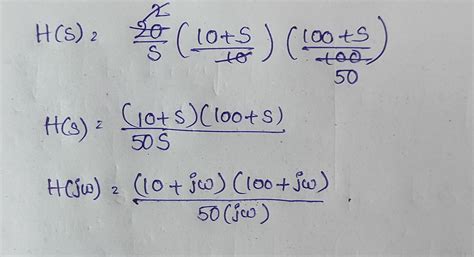 H(s) = 2 20/S (10+S/10) (100+S/100 50)
H(s) = (10+S)(100+S)/50S
H(jω) = (10+jω)(100+jω)/50(jω)